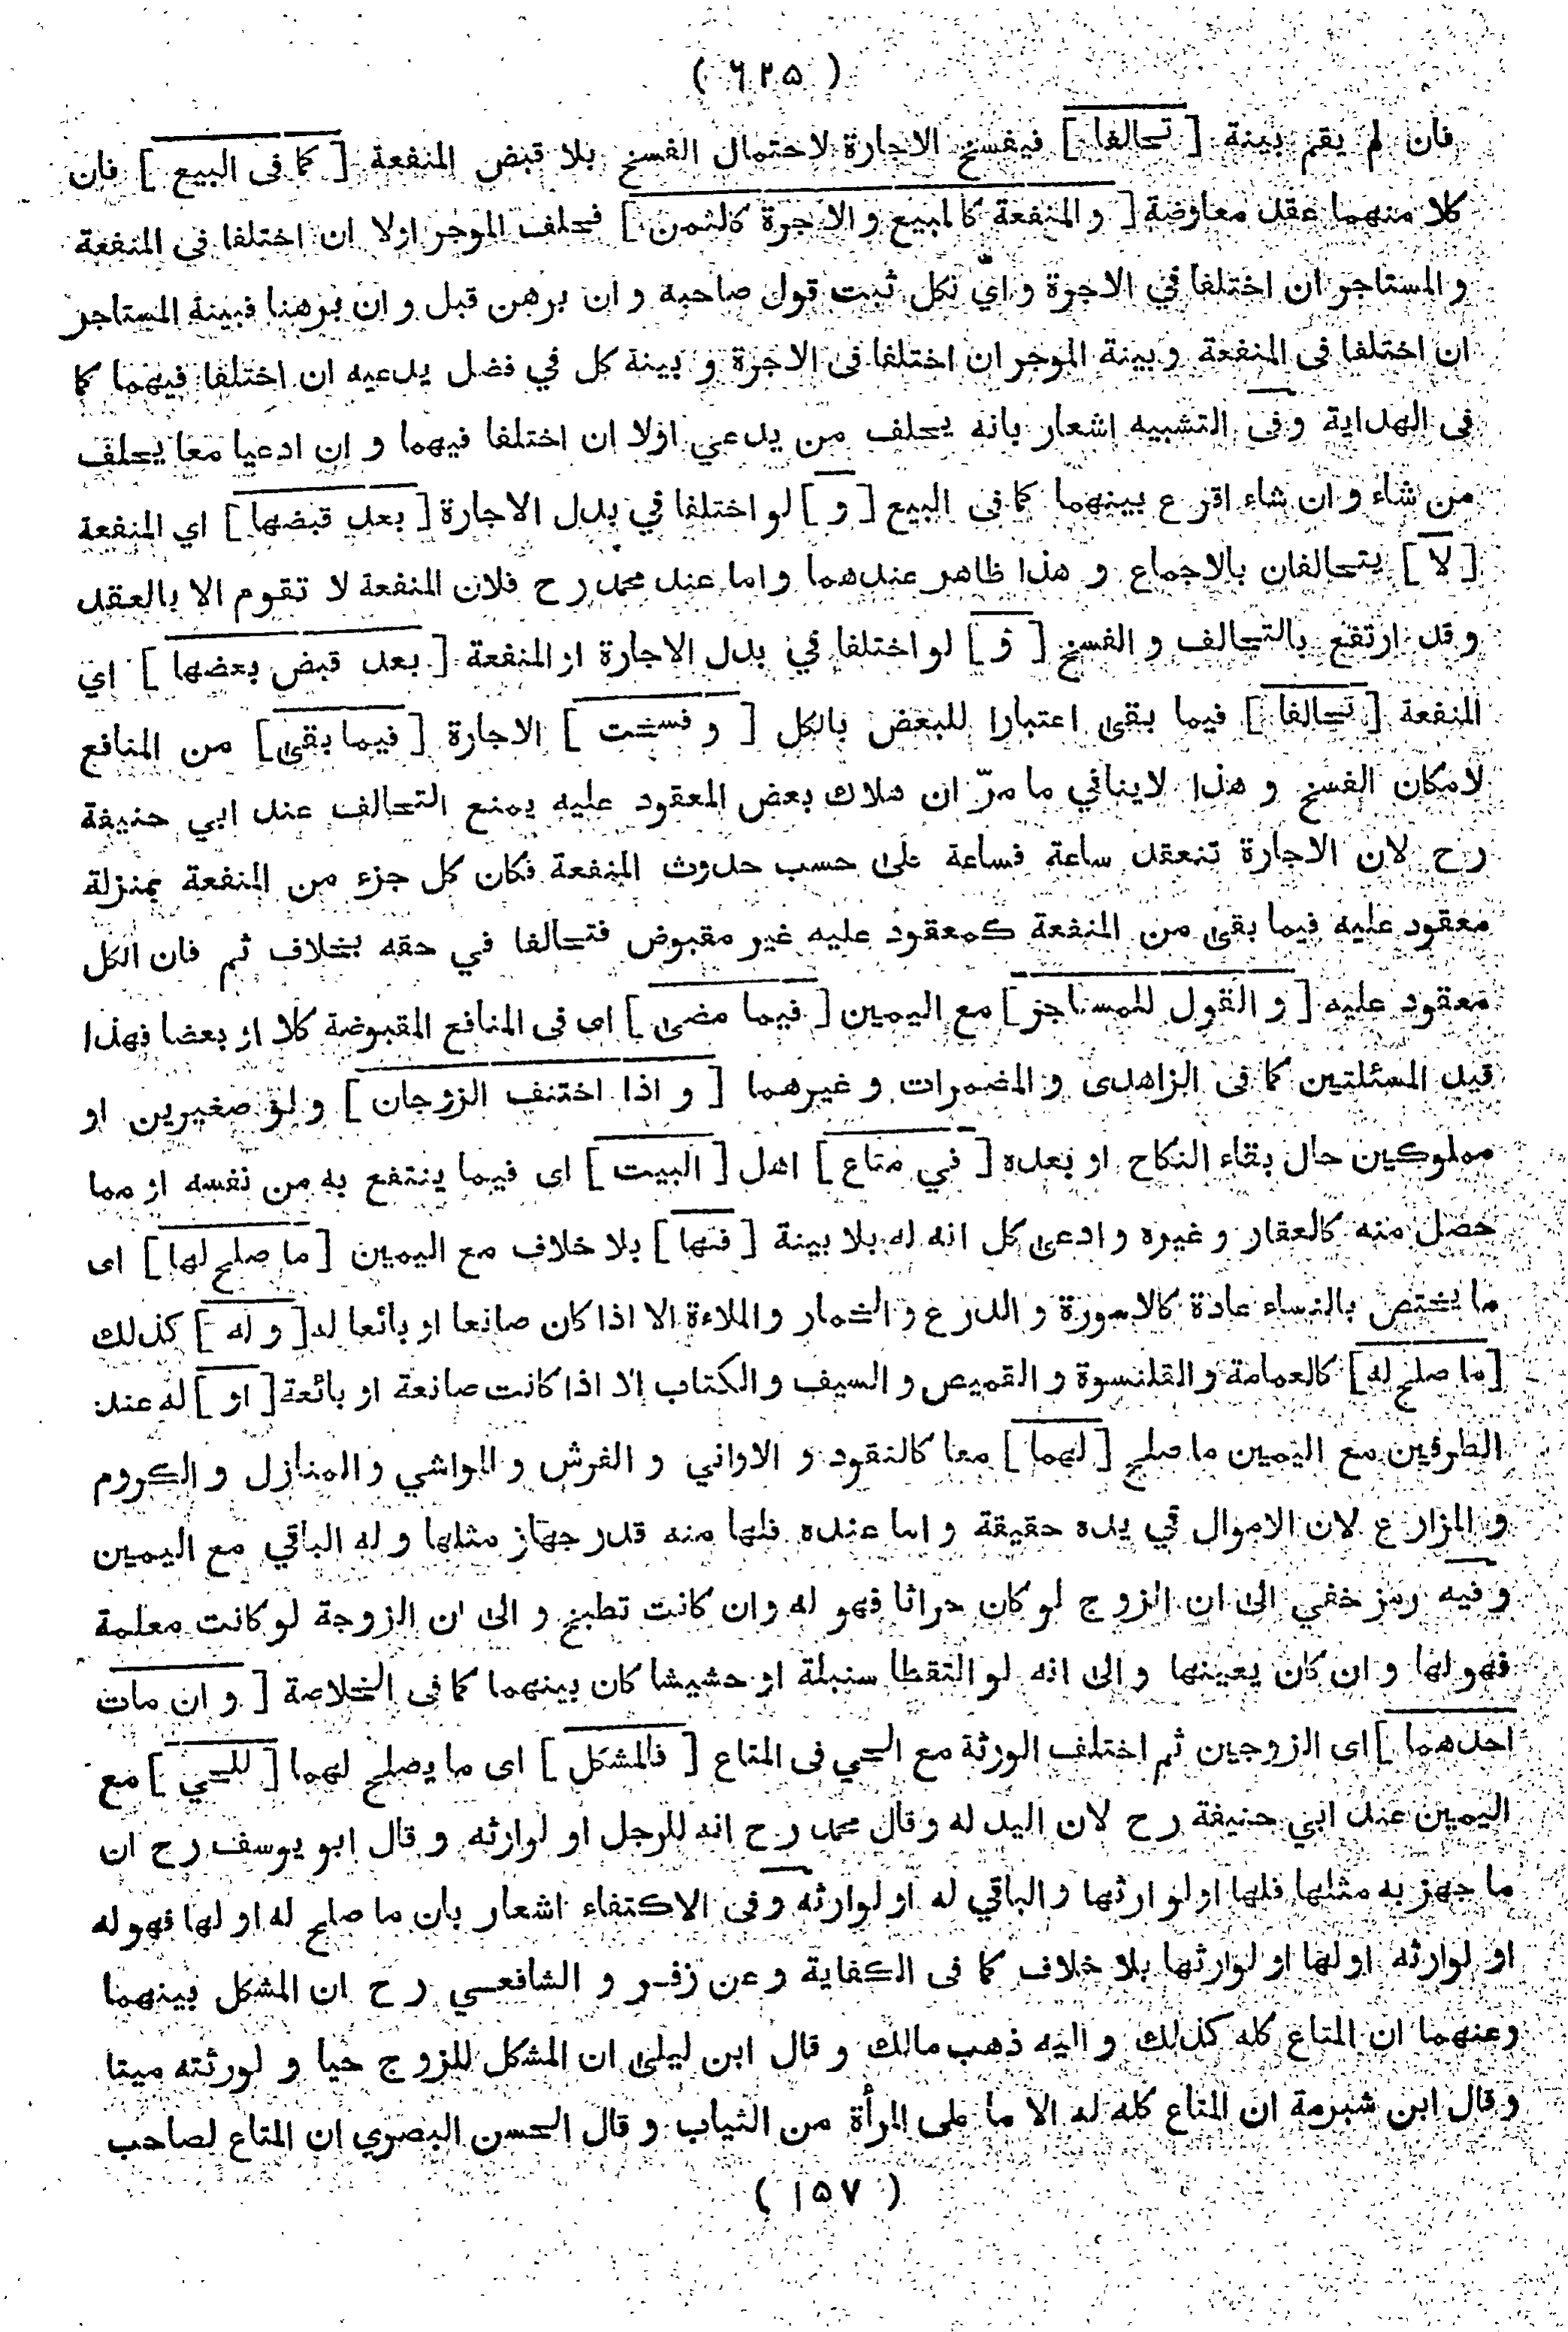 ( ۶۲۵ )
فان لم يقم بينة [ تحالفا ] فيفسخ الاجارة لاحتمال الفسخ بلا قبض المنفعة [ كما فى البيع ] فان
كلا منهما عقد معاوضة [ و المنفعة كالمبيع و الاجرة كالثمن ] فحلف الموجر اولا ان اختلفا فى المنفعة
و المستاجر ان اختلفا في الاجرة و ايّ نكل ثبت قول صاحبه و ان برهن قبل و ان برهنا فبينة المستاجر
ان اختلفا فى المنفعة و بينة الموجر ان اختلفا فى الاجرة و بينة كل في فضل يدعيه ان اختلفا فيهما كما
فى الهداية وفى التشبيه اشعار بانه يحلف من يدعي اولا ان اختلفا فيهما و ان ادعيا معا يحلف
من شاء و ان شاء اقرع بينهما كما فى البيع [ و ] لو اختلفا في بدل الاجارة [ بعد قبضها ] اي المنفعة
[ لا ] يتحالفان بالاجماع و هذا ظاهر عندهما و اما عند محمد رح فلان المنفعة لا تقوم الا بالعقد
و قد ارتفع بالتحالف و الفسخ [ و ] لو اختلفا في بدل الاجارة او المنفعة [ بعد قبض بعضها ] اي
المنفعة [ تحالفا ] فيما بقى اعتبارا للبعض بالكل [ و فسخت ] الاجارة [ فيما بقى ] من المنافع
لامكان الفسخ و هذا لاينافي ما مرّ ان هلاك بعض المعقود عليه يمنع التحالف عند ابي حنيفة
رح لان الاجارة تنعقد ساعة فساعة على حسب حدوث المنفعة فكان كل جزء من المنفعة بمنزلة
معقود عليه فيما بقى من المنفعة كمعقود عليه غير مقبوض فتحالفا في حقه بخلاف ثم فان الكل
معقود عليه [ و القول للمستاجر ] مع اليمين [ فيما مضى ] اى فى المنافع المقبوضة كلا او بعضا فهذا
قيد المسئلتين كما فى الزاهدى و المضمرات و غيرهما [ و اذا اختلف الزوجان ] و لو صغيرين او
مملوكين حال بقاء النكاح او بعده [ في متاع ] اهل [ البيت ] اى فيما ينتفع به من نفسه او مما
حصل منه كالعقار و غيره و ادعى كل انه له بلا بينة [ فلها ] بلا خلاف مع اليمين [ ما صلح لها ] اى
ما يختص بالنساء عادة كالاسورة و الدرع و الخمار و الملاءة الا اذا كان صانعا او بائعا له [ و له ] كذلك
[ ما صلح له ] كالعمامة و القلنسوة و القميص و السيف و الكتاب الا اذا كانت صانعة او بائعة [ او ] له عند
الطرفين مع اليمين ما صلح [ لهما ] معا كالنقود و الاواني و الفرش و المواشي و المنازل و الكروم
و المزارع لان الاموال في يده حقيقة و اما عنده فلها منه قدر جهاز مثلها و له الباقي مع اليمين
وفيه رمز خفي الى ان الزوج لو كان حراثا فهو له وان كانت تطبخ و الى ان الزوجة لو كانت معلمة
فهو لها و ان كان يعينها و الى انه لو التقطا سنبلة او حشيشا كان بينهما كما فى الخلاصة [ و ان مات
احدهما ] اى الزوجين ثم اختلف الورثة مع الحي فى المتاع [ فالمشكل ] اى ما يصلح لهما [ للحي ] مع
اليمين عند ابي حنيفة رح لان اليد له وقال محمد رح انه للرجل او لوارثه و قال ابو يوسف رح ان
ما جهز به مثلها فلها اولوارثها و الباقي له اولوارثه وفى الاكتفاء اشعار بان ما صلح له او لها فهو له
او لوارثه اولها او لوارثها بلا خلاف كما فى الكفاية و عن زفر و الشافعي رح ان المشكل بينهما
وعنهما ان المتاع كله كذلك و اليه ذهب مالك و قال ابن ليلى ان المشكل للزوج حيا و لورثته ميتا
وقال ابن شبرمة ان المتاع كله له الا ما على المرأة من الثياب و قال الحسن البصري ان المتاع لصاحب
( ۱۵۷ )